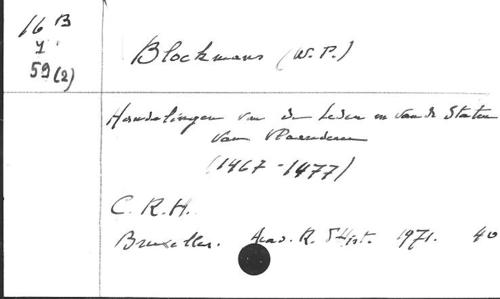 16 B
1
59 (2)
Blockmans (W.P.)
Handelingen van de Leden en van de Staten
van Vlaanderen
(1467-1477)
C.R.H.
Bruxelles. Acad. R. d'Hist. 1971. 4o